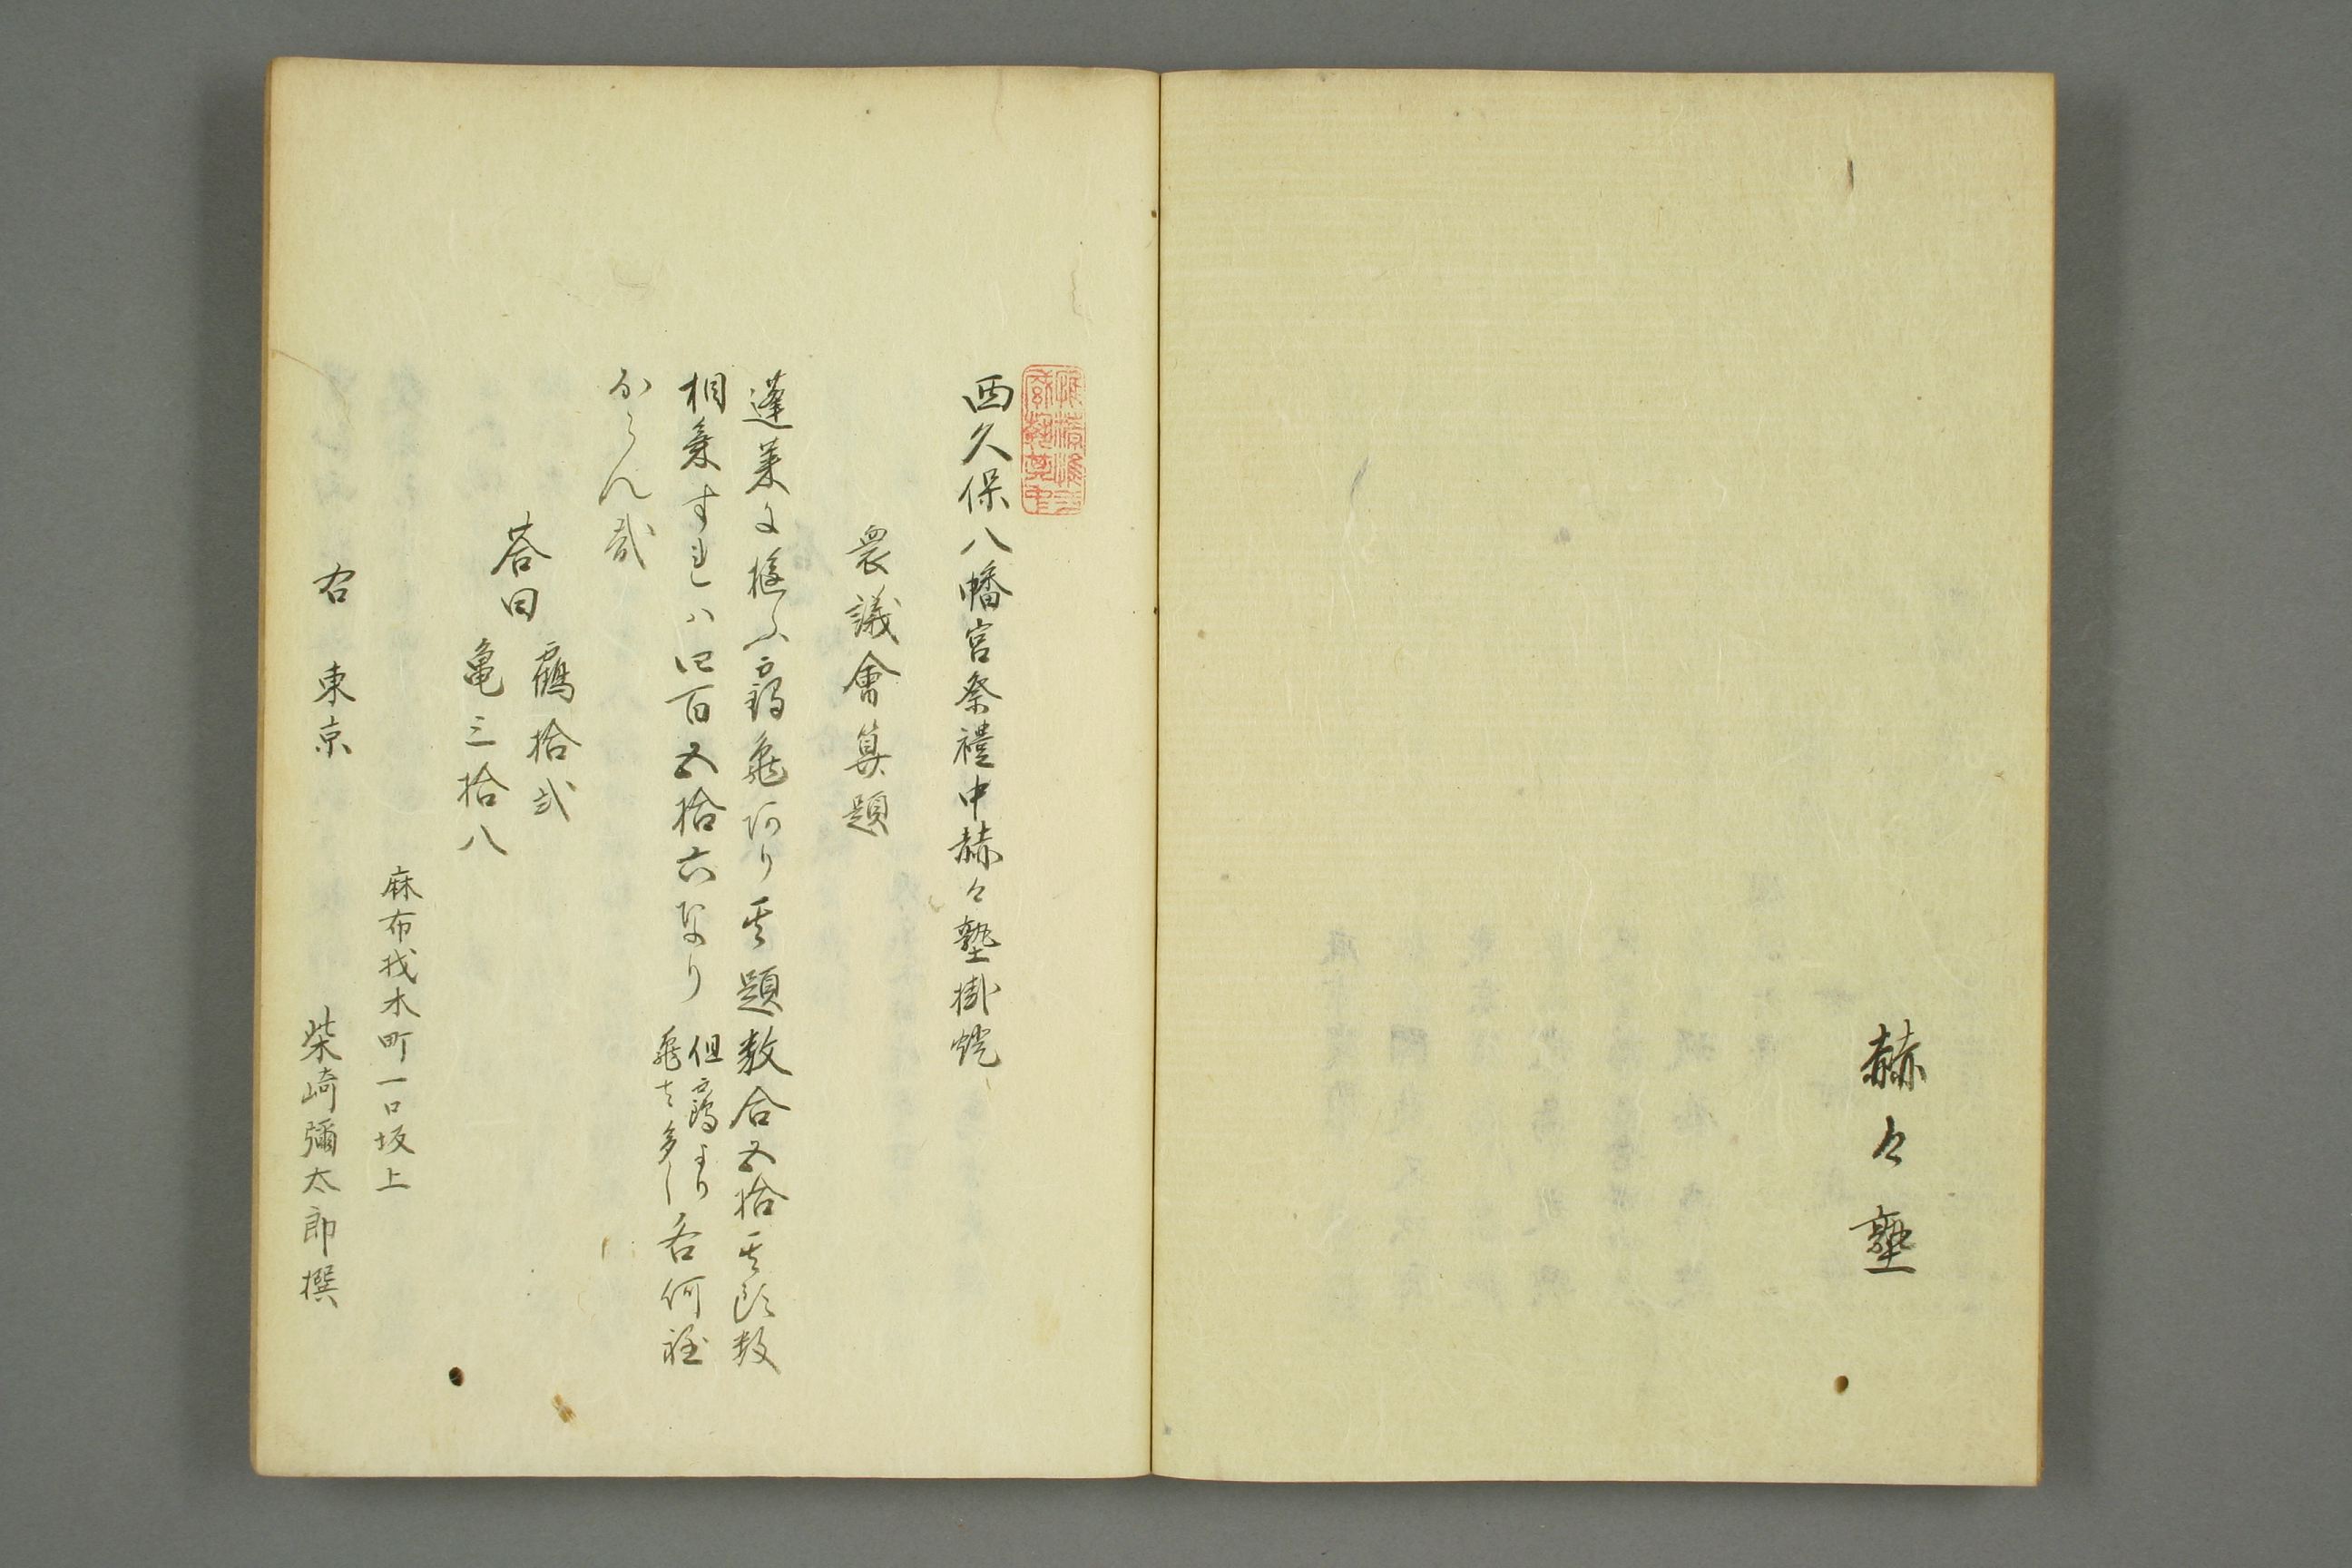 赫々塾
西久保八幡宮祭禮中赫々塾掛燈
衆議會算題
蓬莱に遊ふ鶴亀あり其題数合五拾其頭数
相乗すれハ四百五拾六なり
但鶴より
亀は多し
各何程
からん哉
答曰
鶴拾弐
亀三拾八
麻布我善坊町一口坂上
右 東京
柴崎彌太郎撰